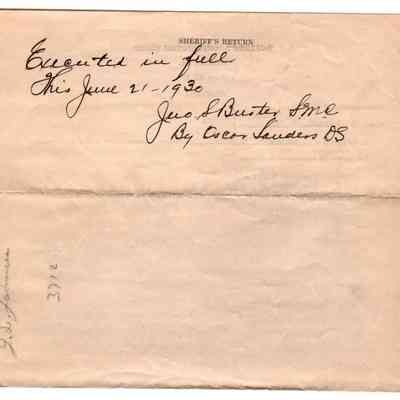 SHERIFF'S RETURN
Executed in full
This June 21-1930
Jno S Buster S.M.C.
By Oscar Sanders DS
3712